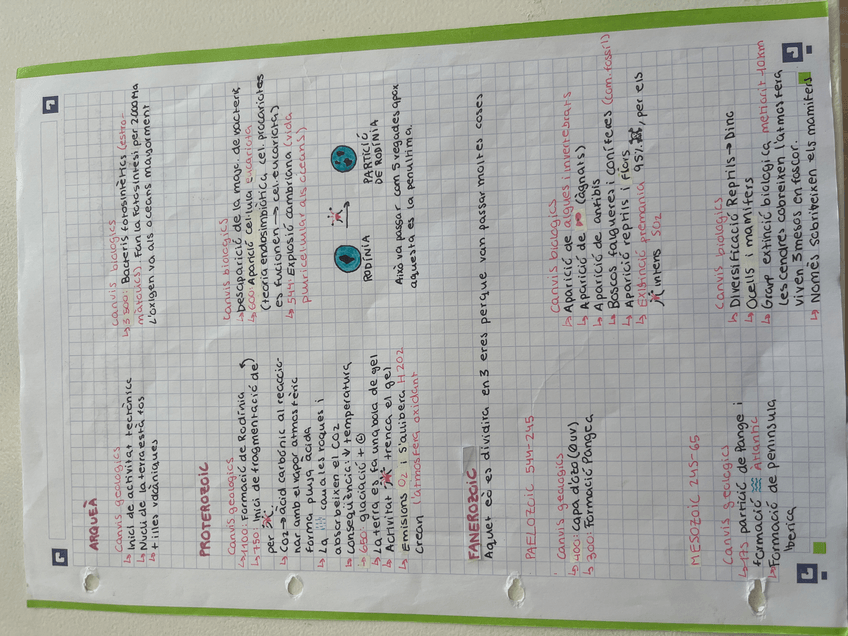 ARQUEÀ
Canvis geologics
↳ Inici de activitat tectònica
↳ Nucli de la terra està fos
↳ + illes volcàniques
Canvis biologics
↳ 3500: Bacteris fotosintètics (estro-
matòlics). Fan la Fotosintesi per 2000Ma
L'oxigen va als oceans mayorment
PROTEROZOIC
Canvis geologics
↳ 1100: Formació de Rodínia
↳ 750: Inici de fragmentació de
per
↳ CO2 → àcid carbònic al reaccio-
nar amb el vapor atmosfèric
forma pluja àcida
↳ La cau a les roques i
absorbeixen el CO2
↳ consequència: ↓ temperatura
↳ 650: glaciació +
↳ La terra es fa una bola de gel
↳ Activitat trenca el gel
↳ Emisions O2 i s'allibera H2O2
Crean l'atmosfera oxidant
Canvis biologics
↳ Desaparició de la majo. de bacteris
↳ 600: Aparició cel·lula eucariota
(teoria endosimbiòtica cel. procariotes
es fucionen → cel. eucariotas)
↳ 544: Explosió cambriana (vida
pluricel·lular als oceans)
RODÍNIA
PARTICIÓ
DE RODÍNIA
Això va passar com 5 vegades apox
aquesta es la penultima.
FANEROZOIC
Aquet eò es dividira en 3 eres perque van passar moltes coses
PAELOZOIC 544-245
Canvis geologics
↳ 400: Capa d'ozó (O UV)
↳ 300: Formació Pangea
Canvis biologics
↳ Aparició de algues i invertebrats
↳ Aparició de (àgnats)
↳ Aparició de anfibis
↳ Boscos falgueres i coníferes (com. fossil)
↳ Aparició reptils i flors
↳ Extinció premania 95%, per els
intens SO2
MESOZOIC 245-65
Canvis geologics
↳ 173 partició de Pange i
formació Atlantic
↳ Formació de peninsula
Iberica
Canvis biologics
↳ Diversificació Reptils → Dino
↳ Ocells i mamifers
↳ Group extinció biologica metiorit 10km
Les cendres cobreixen l'atmosfera
viven 3 mesos en foscor.
↳ Només sobribeixen els mamifers